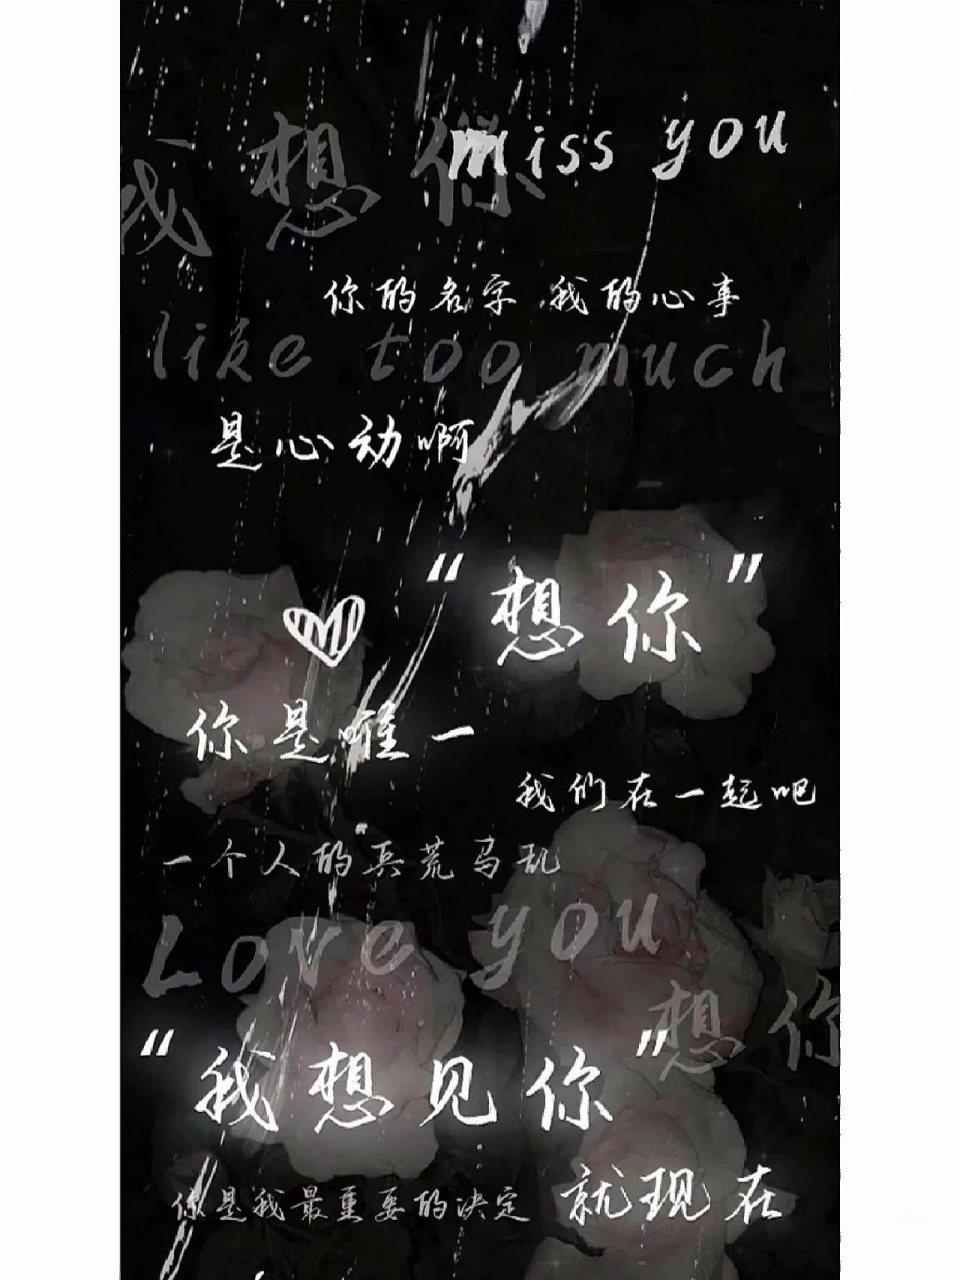 miss you
我想你
你的名字 我的心事
like too much
是心动啊
“想你”
你是唯一
我们在一起吧
一个人的兵荒马乱
Love you
想你
“我想见你”
你是我最重要的决定
就现在